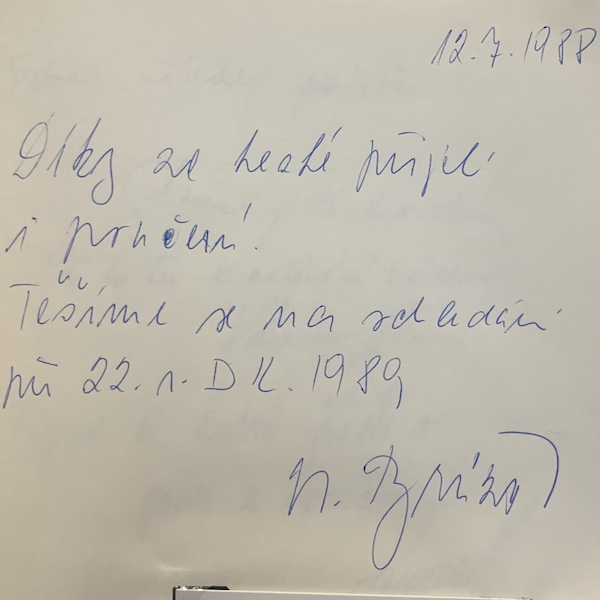 12.7.1988
Díky za hezké přijetí
i poučení.
Těšíme se na shledání
při 22. r. DK. 1989